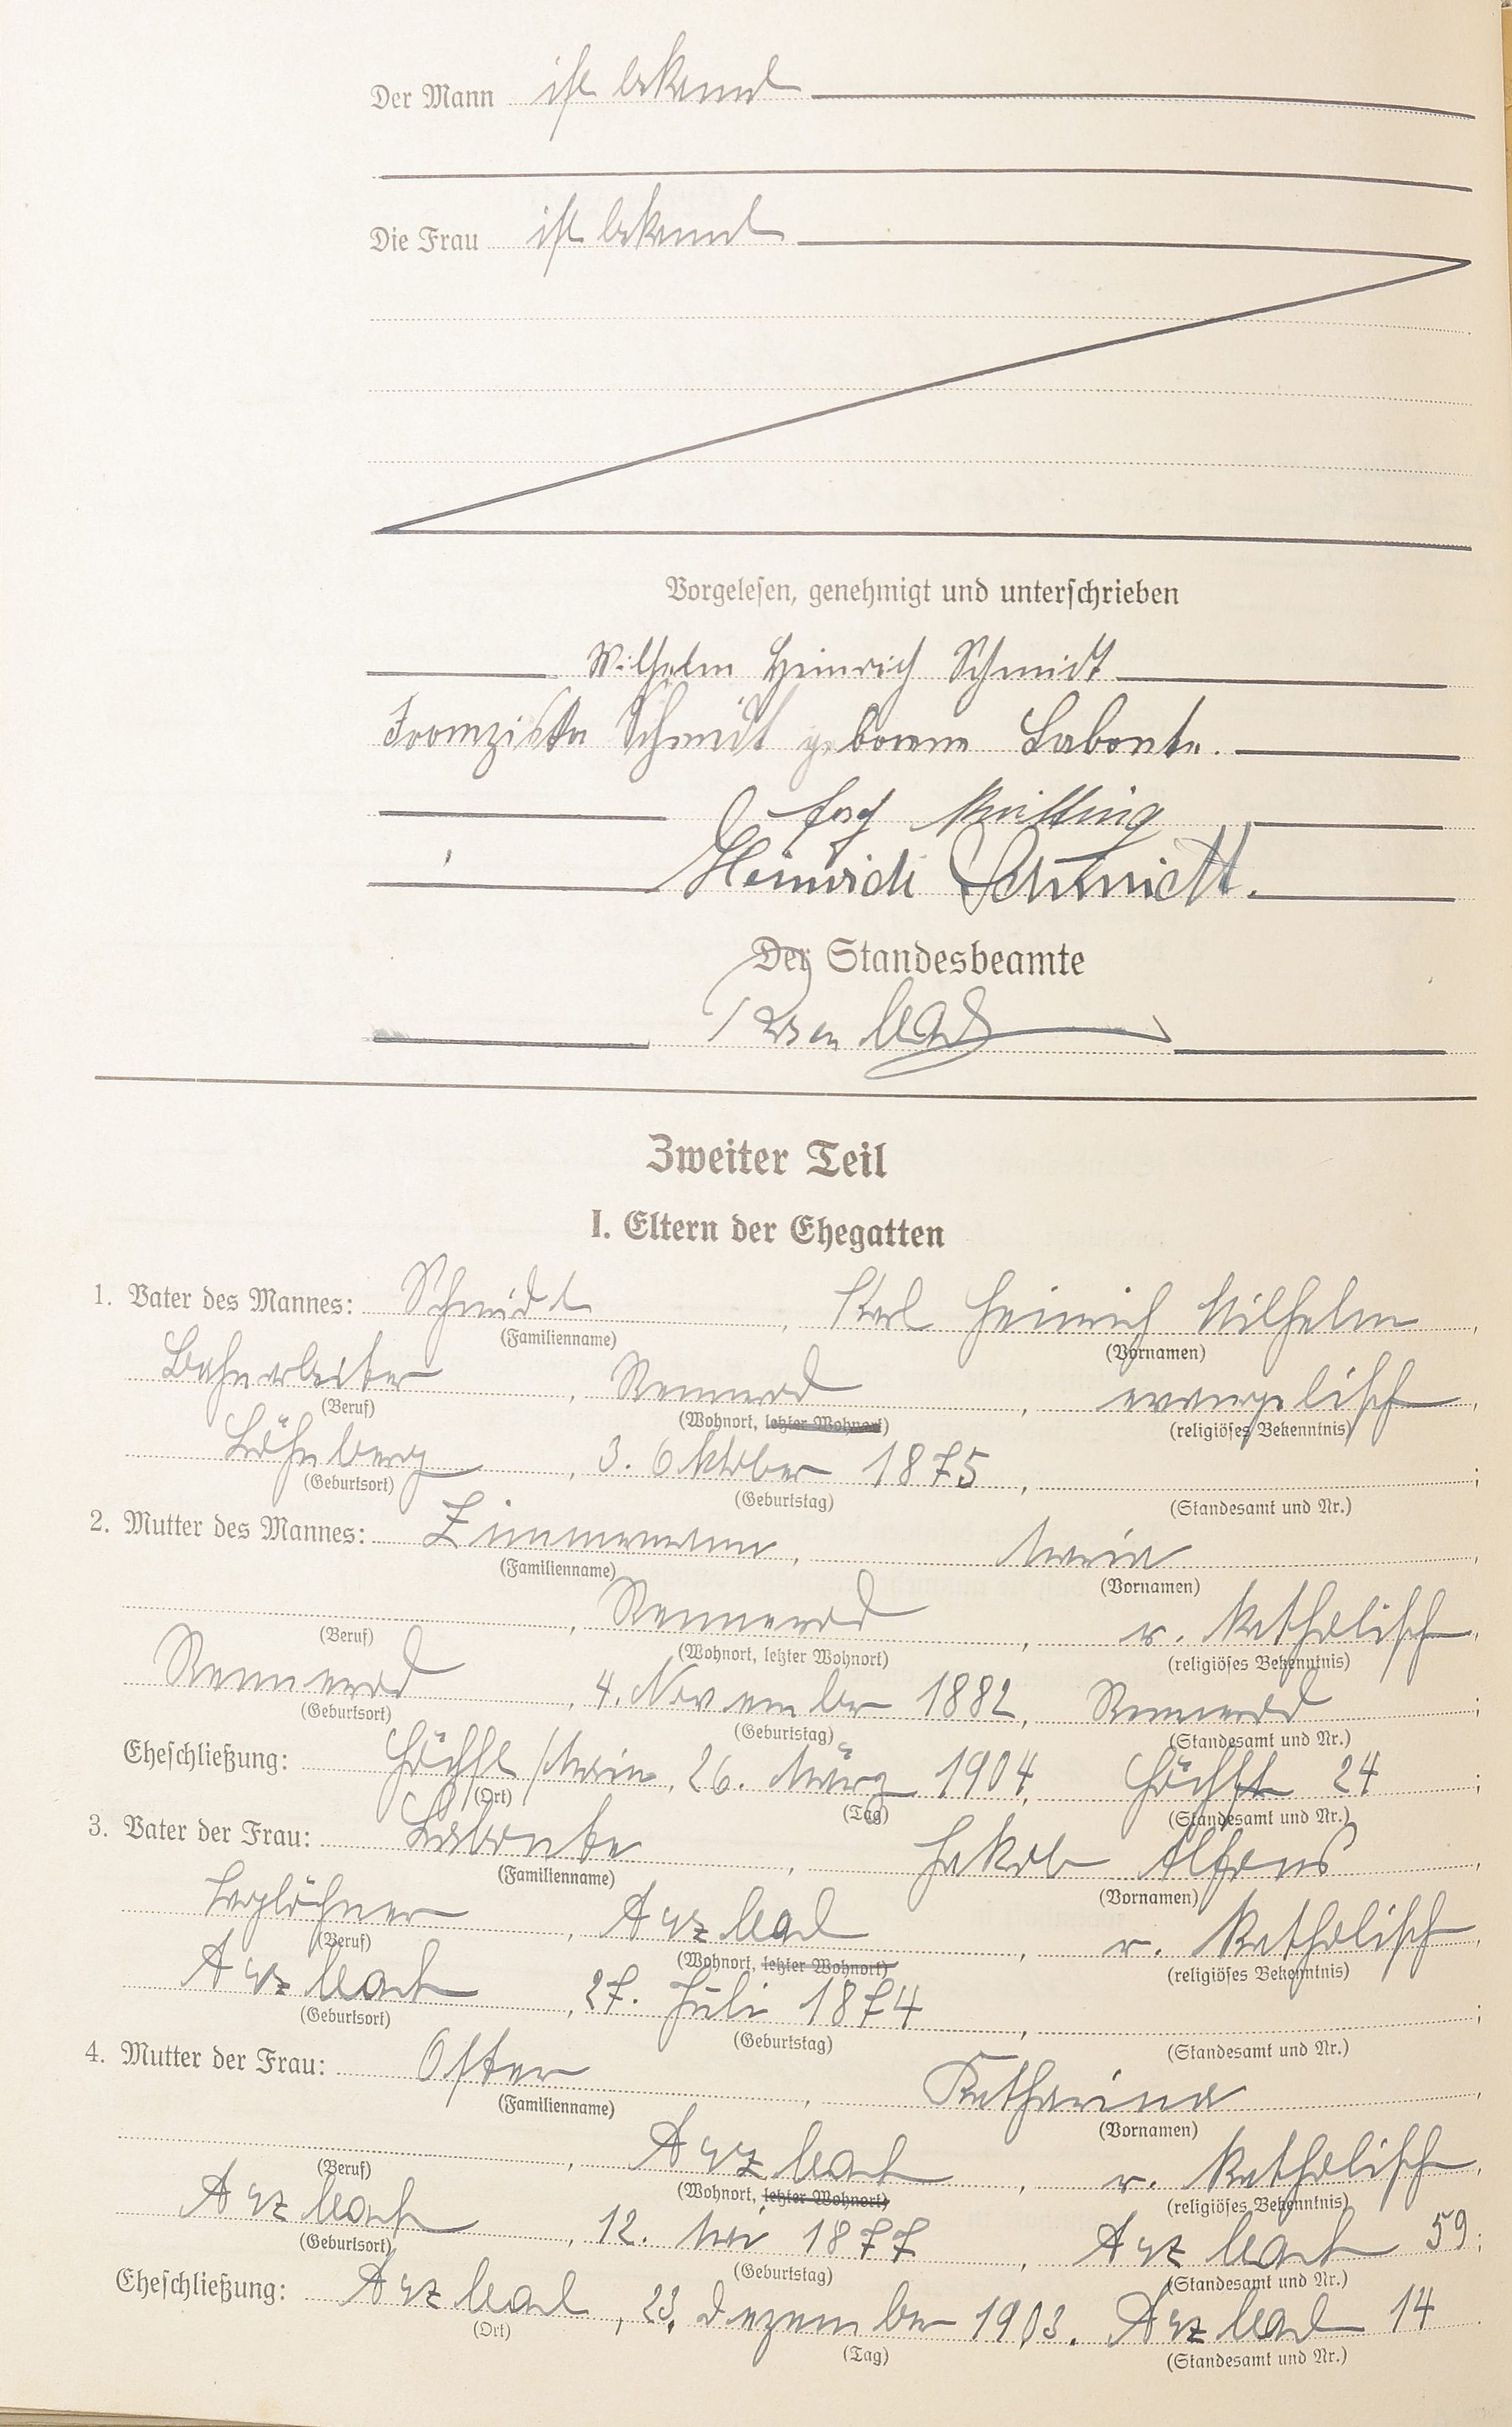 Der Mann ist bekannt
Die Frau ist bekannt
Vorgelesen, genehmigt und unterschrieben
Wilhelm Heinrich Schmidt
Franziska Schmidt geborene Labonte.
Heinrich Schmidt.
Der Standesbeamte
Zweiter Teil
I. Eltern der Ehegatten
1. Vater des Mannes: Schmidt, Karl Heinrich Wilhelm,
(Familienname) (Vornamen)
Bahnarbeiter, Rennerod, evangelisch,
(Beruf) (Wohnort, letzter Wohnort) (religiöses Bekenntnis)
Löhnberg, 3. Oktober 1875,
(Geburtsort) (Geburtstag) (Standesamt und Nr.)
2. Mutter des Mannes: Zimmermann, Maria,
(Familienname) (Vornamen)
, Rennerod, r. katholisch,
(Beruf) (Wohnort, letzter Wohnort) (religiöses Bekenntnis)
Rennerod, 4. November 1882, Rennerod;
(Geburtsort) (Geburtstag) (Standesamt und Nr.)
Eheschließung: Höchst/Main, 26. März 1904, Höchst 24;
(Ort) (Tag) (Standesamt und Nr.)
3. Vater der Frau: Labonte, Jakob Alfons,
(Familienname) (Vornamen)
Taglöhner, Arzbach, r. katholisch,
(Beruf) (Wohnort, letzter Wohnort) (religiöses Bekenntnis)
Arzbach, 27. Juli 1874,;
(Geburtsort) (Geburtstag) (Standesamt und Nr.)
4. Mutter der Frau: Oster, Katharina,
(Familienname) (Vornamen)
, Arzbach, r. katholisch,
(Beruf) (Wohnort, letzter Wohnort) (religiöses Bekenntnis)
Arzbach, 12. Mai 1877, Arzbach 59;
(Geburtsort) (Geburtstag) (Standesamt und Nr.)
Eheschließung: Arzbach, 23. Dezember 1903. Arzbach 14.
(Ort) (Tag) (Standesamt und Nr.)